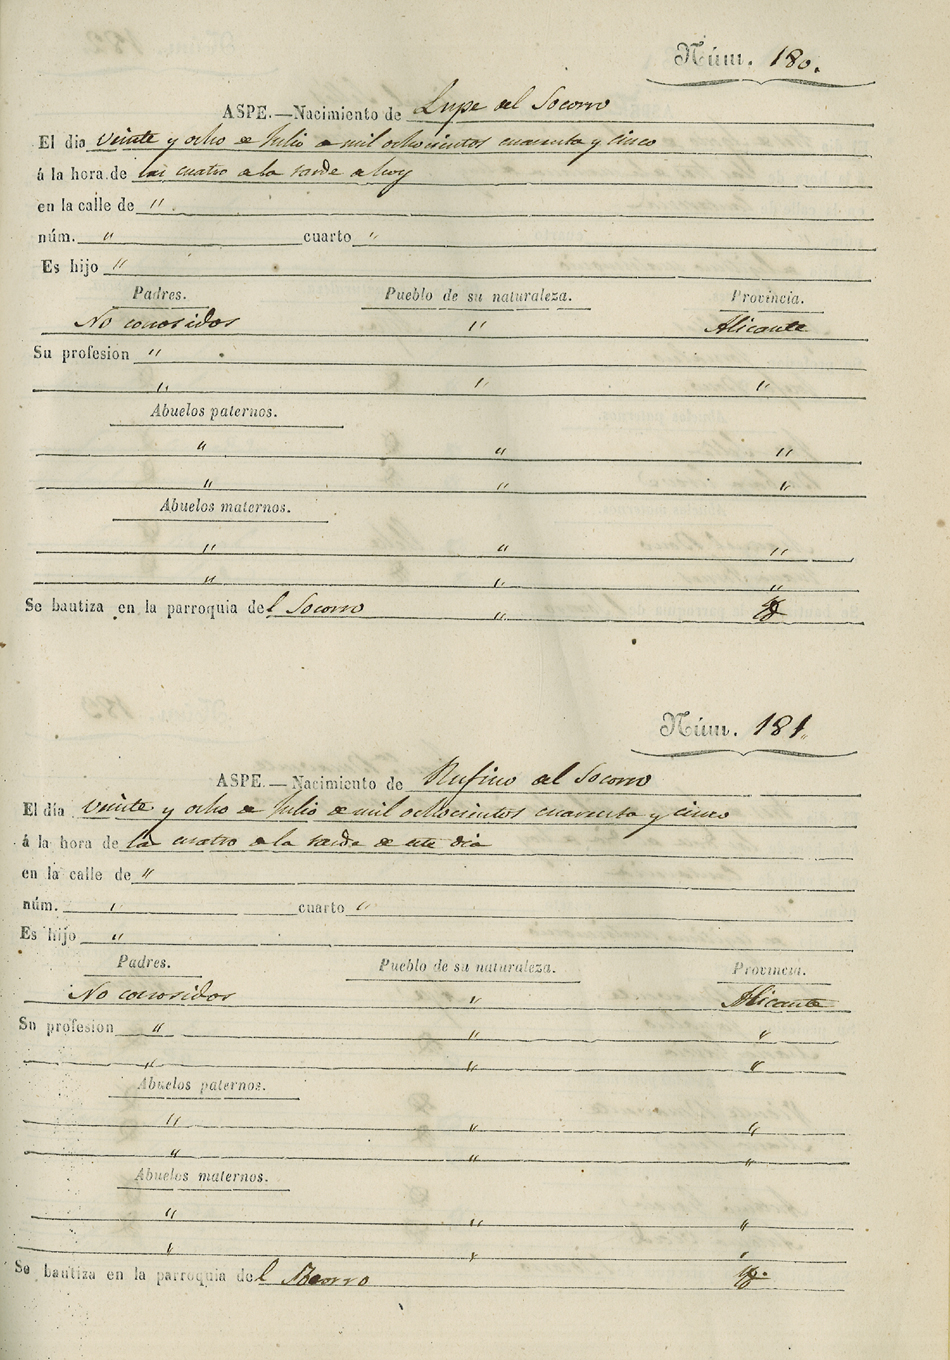 Núm. 180.
ASPE.—Nacimiento de Lupe del Socorro
El dia veinte y ocho de Julio de mil ochocientos cuarenta y cinco
á la hora de las cuatro de la tarde de hoy
en la calle de "
núm. " cuarto "
Es hijo "
Padres. Pueblo de su naturaleza. Provincia.
No conosidos " Alicante
Su profesion "
" " "
Abuelos paternos.
" " "
" " "
Abuelos maternos.
" " "
" " "
Se bautiza en la parroquia del Socorro "
Núm. 181.
ASPE.—Nacimiento de Rufino del Socorro
El dia veinte y ocho de Julio de mil ochocientos cuarenta y cinco
á la hora de las cuatro de la tarde de este dia
en la calle de "
núm. " cuarto "
Es hijo "
Padres. Pueblo de su naturaleza. Provincia.
No conosidos " Alicante
Su profesion " " "
" " "
Abuelos paternos.
" " "
" " "
Abuelos maternos.
" " "
" " "
Se bautiza en la parroquia del Socorro